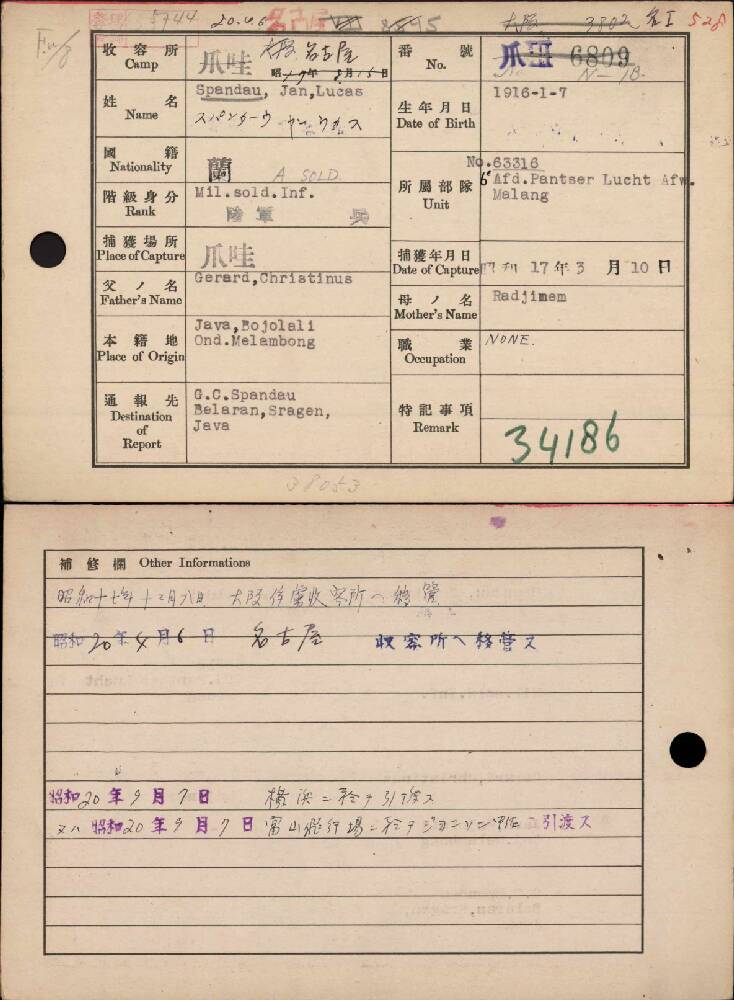 5744 20.4.6 名古屋 大阪 3802 名I 528
收容所 Camp 爪哇 大阪 名古屋
昭17年8月15日
番號 No. 爪 6809
N-1B.
姓名 Name Spandau, Jan,Lucas
スパンダーウ
生年月日 Date of Birth 1916-1-7
國籍 Nationality 蘭 A SOLD
階級身分 Rank Mil.sold.Inf.
陸軍 兵
所屬部隊 Unit No.63316
6e Afd.Pantser Lucht Afw.
Malang
捕獲場所 Place of Capture 爪哇
捕獲年月日 Date of Capture 昭和 17年3月10日
父ノ名 Father's Name Gerard,Christinus
母ノ名 Mother's Name Radjimem
本籍地 Place of Origin Java,Bojolali
Ond.Melambong
職業 Occupation NONE.
通報先 Destination of Report G.C.Spandau
Belaran,Sragen,
Java
特記事項 Remark
34186
38053
補修欄 Other Informations
昭和十七年十二月八日 大阪俘虜收容所へ移管
昭和20年4月6日 名古屋 收容所へ移管ス
昭和20年9月7日 横浜ニ於テ引渡ス
又ハ昭和20年9月7日 富山飛行場ニ於テジョンソン中佐ニ引渡ス